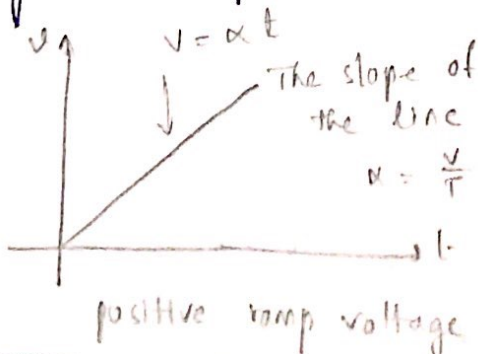 v
v = αt
The slope of
the line
α = V/T
t
positive ramp voltage